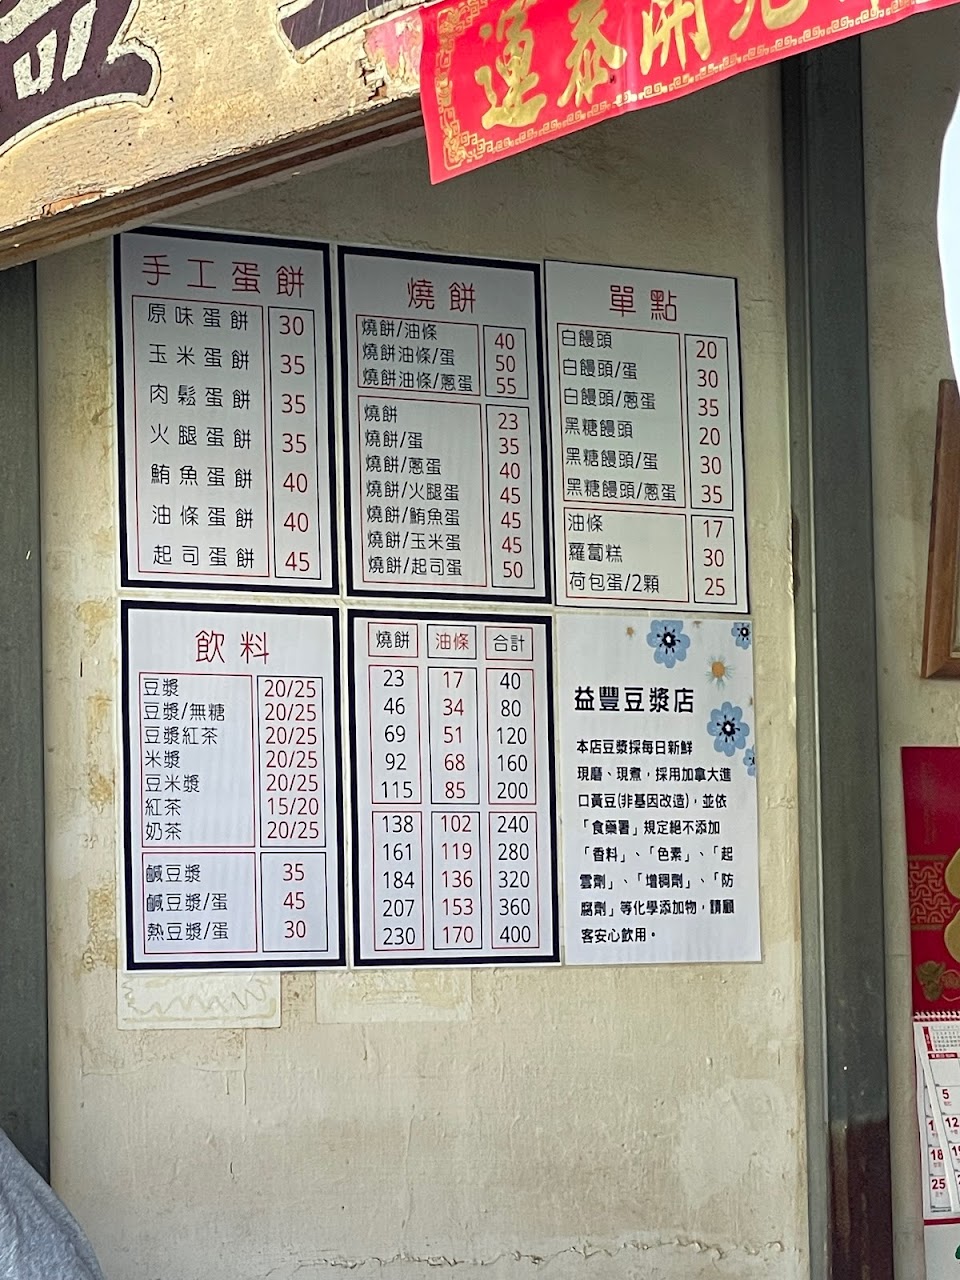 益
運泰開
手工蛋餅
原味蛋餅 30
玉米蛋餅 35
肉鬆蛋餅 35
火腿蛋餅 35
鮪魚蛋餅 40
油條蛋餅 40
起司蛋餅 45
燒餅
燒餅/油條 40
燒餅油條/蛋 50
燒餅油條/蔥蛋 55
燒餅 23
燒餅/蛋 35
燒餅/蔥蛋 40
燒餅/火腿蛋 45
燒餅/鮪魚蛋 45
燒餅/玉米蛋 45
燒餅/起司蛋 50
單點
白饅頭 20
白饅頭/蛋 30
白饅頭/蔥蛋 35
黑糖饅頭 20
黑糖饅頭/蛋 30
黑糖饅頭/蔥蛋 35
油條 17
蘿蔔糕 30
荷包蛋/2顆 25
飲料
豆漿 20/25
豆漿/無糖 20/25
豆漿紅茶 20/25
米漿 20/25
豆米漿 20/25
紅茶 15/20
奶茶 20/25
鹹豆漿 35
鹹豆漿/蛋 45
熱豆漿/蛋 30
燒餅 油條 合計
23 17 40
46 34 80
69 51 120
92 68 160
115 85 200
138 102 240
161 119 280
184 136 320
207 153 360
230 170 400
益豐豆漿店
本店豆漿採每日新鮮
現磨、現煮，採用加拿大進
口黃豆(非基因改造)，並依
「食藥署」規定絕不添加
「香料」、「色素」、「起
雲劑」、「增稠劑」、「防
腐劑」等化學添加物，請顧
客安心飲用。
5
12
18
25